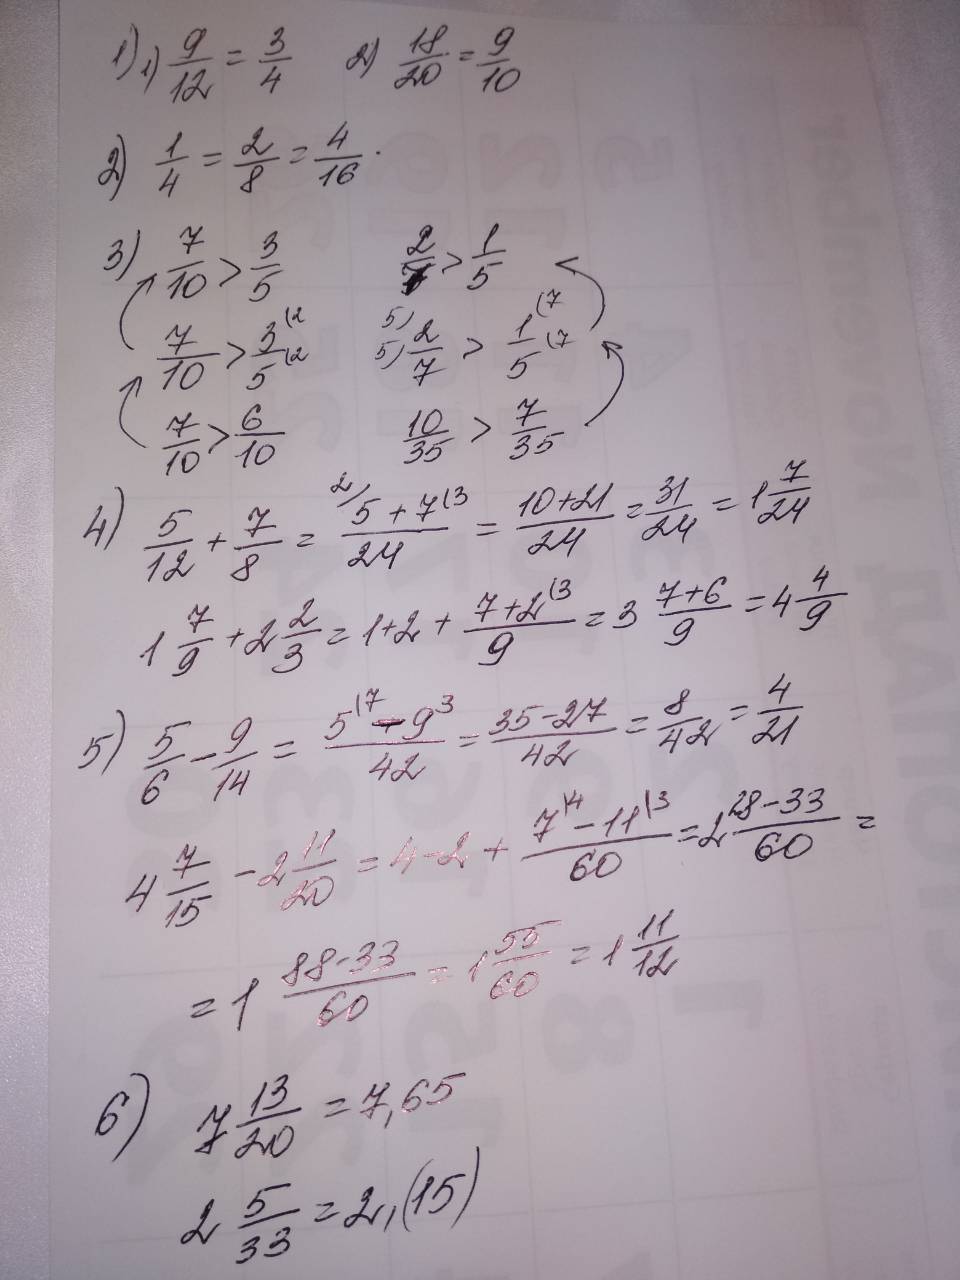 1) 1) 9/12 = 3/4 2) 18/20 = 9/10
2) 1/4 = 2/8 = 4/16.
3) 7/10 > 3/5 2/7 > 1/5
7/10 > 3(2/5(2 5)2/5)7 > 1(7/5(7
7/10 > 6/10 10/35 > 7/35
4) 5/12 + 7/8 = (2/5 + 7(3)/24 = (10+21)/24 = 31/24 = 1 7/24
1 7/9 + 2 2/3 = 1+2 + (7+2(3)/9 = 3 (7+6)/9 = 4 4/9
5) 5/6 - 9/14 = (5(7 - 9 3)/42 = (35-27)/42 = 8/42 = 4/21
4 7/15 - 2 11/20 = 4-2 + (7(4 - 11(3)/60 = 2 (28-33)/60 =
= 1 (88-33)/60 = 1 55/60 = 1 11/12
6) 7 13/20 = 7,65
2 5/33 = 2,(15)